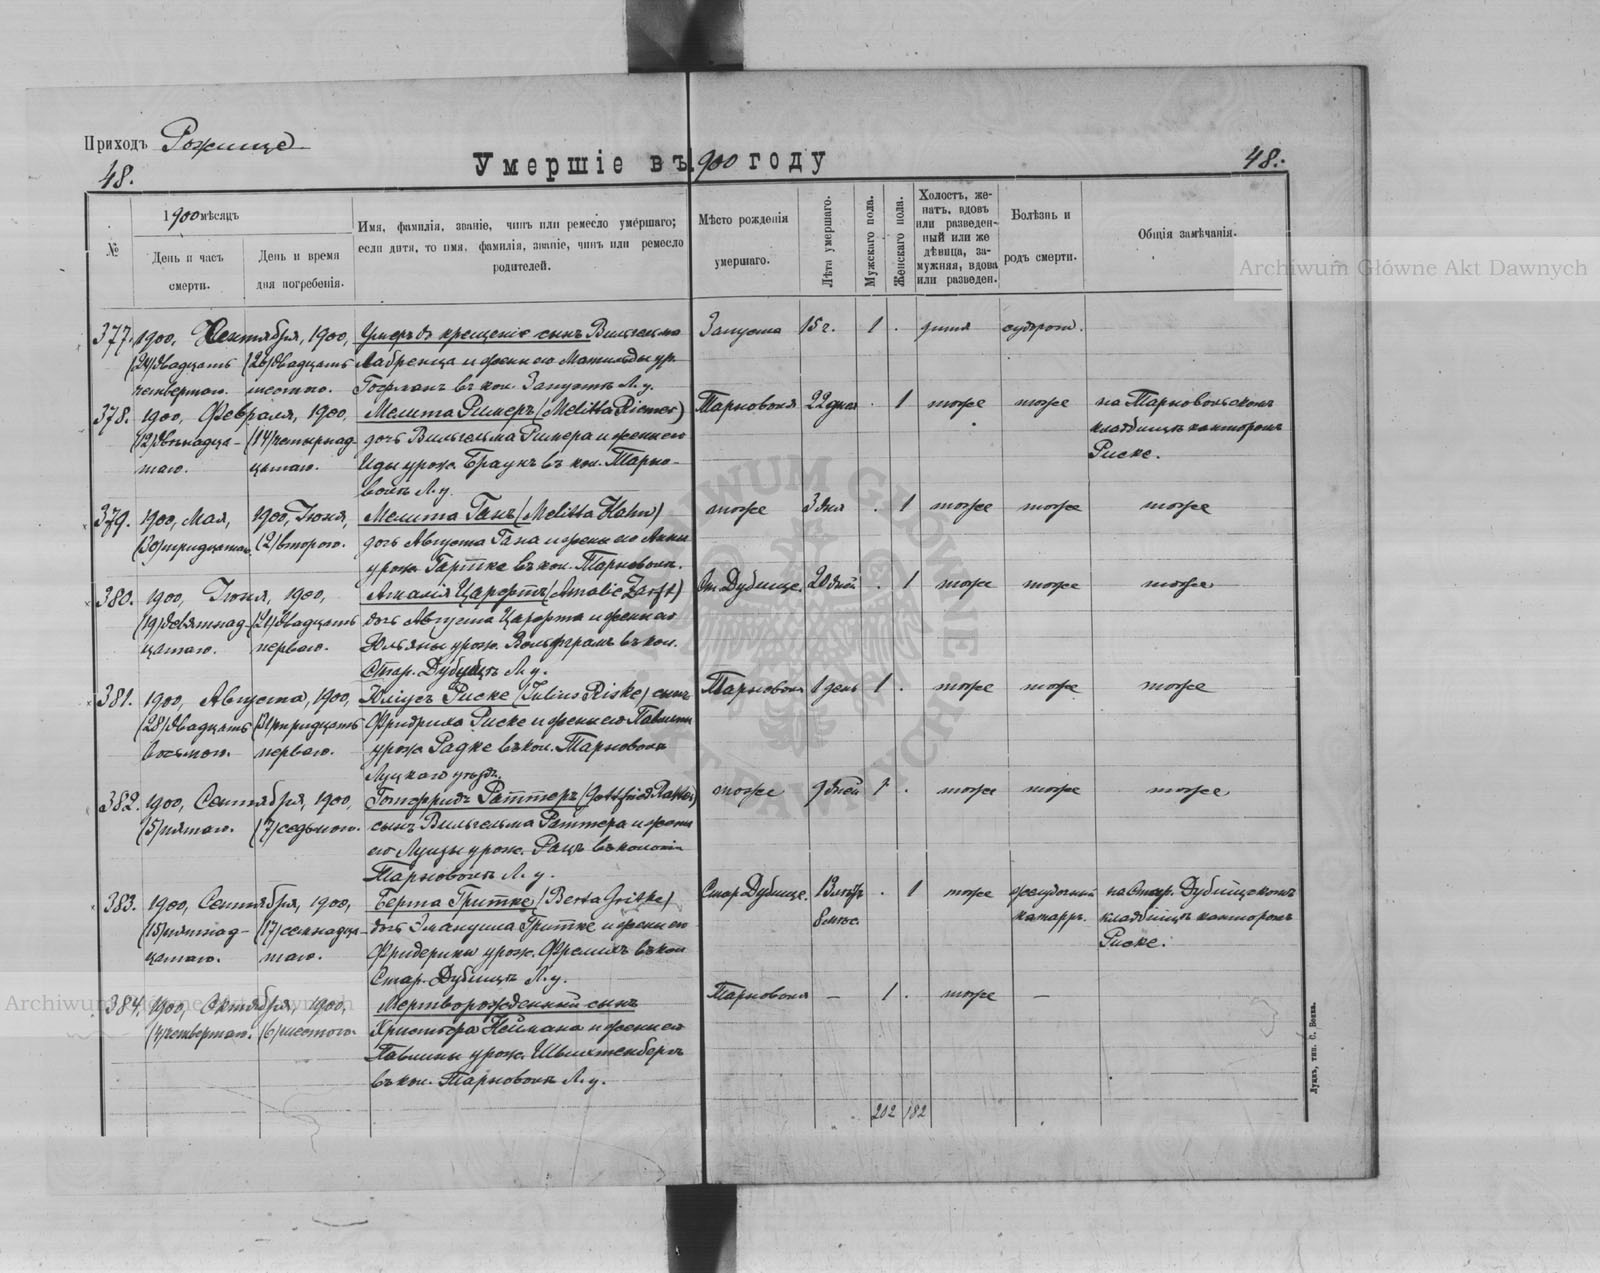 Приходъ Рожище
48.
Умершіе въ 900 году
48.
№
1900 мѣсяцъ
День и часъ смерти.
День и время дня погребенія.
Имя, фамилія, званіе, чинъ или ремесло умершаго; если дитя, то имя, фамилія, званіе, чинъ или ремесло родителей.
Мѣсто рожденія умершаго.
Лѣта умершаго.
Мужскаго пола.
Женскаго пола.
Холостъ, женатъ, вдовъ или разведенный или же дѣвица, замужняя, вдова или разведен.
Болѣзнь и родъ смерти.
Общія замѣчанія.
Archiwum Główne Akt Dawnych
377. 1900, Сентября, 1900, сынъ Вильгельма Запуста 15 г. 1 . дитя судорож.
(24) двадцать (26) двадцать и жены его Матильды ур.
четвертаго. шестого. Гофманъ въ кол. Запустѣ Л. у.
378. 1900, Февраля, 1900, Мелита Римеръ (Melitta Riemer) Тарноволя 22 дня . 1 тоже тоже на Тарновольскомъ
(12) двѣнадца- (14) четырнад- дочь Вильгельма Римера и жены его кладбищѣ канторомъ
таго. цатаго. Иды урож. Браунъ въ кол. Тарно- Риске.
волѣ Л. у.
379. 1900, Мая, 1900, Іюня, Мелита Ганъ (Melitta Hahn) тоже 3 дня . 1 тоже тоже тоже
(30) тридцатаго (2) второго. дочь Августа Гана и жены его Анны
урож. Гартке въ кол. Тарноволѣ.
380. 1900, Іюня, 1900, Амалія Царфтъ (Amalie Zarft) Ст. Дубище. 20 дней . 1 тоже тоже тоже
(19) девятнад- (21) двадцать дочь Августа Царфта и жены его
цатаго. перваго. Юльяны урож. Вольфграмъ въ кол.
Стар. Дубищѣ Л. у.
381. 1900, Августа, 1900, Юліусъ Риске (Julius Riske) сынъ Тарноволя 1 день 1 . тоже тоже тоже
(28) двадцать (31) тридцать Фридриха Риске и жены его Павлины
восьмого. перваго. урож. Радке въ кол. Тарноволѣ
Луцкаго уѣзда.
382. 1900, Сентября, 1900, Готфридъ Раттеръ (Gottfried Ratter) тоже 9 дней 1 . тоже тоже тоже
(5) пятаго. (7) седьмого. сынъ Вильгельма Раттера и жены
его Луизы урож. Рацъ въ колоніи
Тарноволѣ Л. у.
383. 1900, Сентября, 1900, Берта Гритке (Berta Gritke) Стар. Дубище. . 1 тоже катарръ. на Стар. Дубищскомъ
(15) пятнад- (17) семнадца- дочь Эмануила Гритке и жены его 8 мѣс. кладбищѣ канторомъ
цатаго. таго. Фридерики урож. въ кол. Риске.
Стар. Дубищѣ Л. у.
384. 1900, Октября, 1900, Мертворожденный сынъ Тарноволя — 1 . тоже —
(4) четвертаго. (6) шестого. Христофа Неймана и жены его
Павлины урож. Швихтенбергъ
въ кол. Тарноволѣ Л. у.
202 182
Луцкъ, тип. С. Бонка.
Archiwum Główne Akt Dawnych
ARCHIWUM GŁÓWNE AKT DAWNYCH